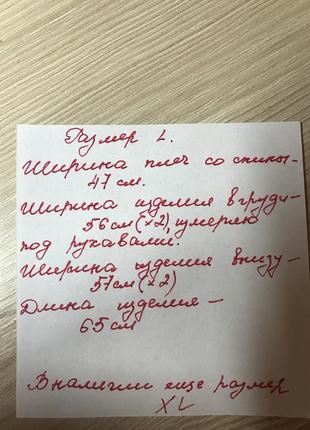 Размер L.
Ширина плеч со спины-
47 см.
Ширина изделия в груди-
56 см (×2), измеряю
под рукавами.
Ширина изделия внизу-
57 см (×2)
Длина изделия -
65 см
В наличии еще размер
XL